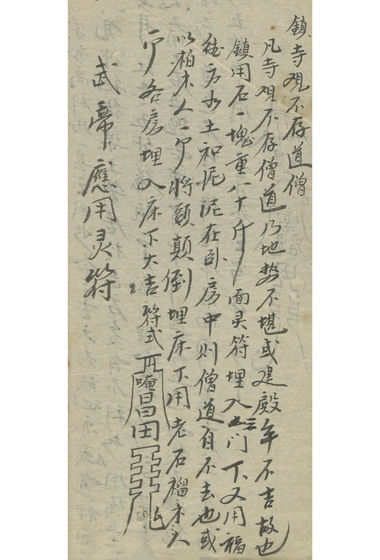 鎮寺观不存道僧
凡寺观不存僧道乃地势不堪或建殿年不吉故也
鎮用石一塊重八十斤一面灵符埋入三门下又用福
德方水土和泥泥在卧房中则僧道自不去也或
以柏木人一个将頭顛倒埋床下用老石榴木人
一个各房埋入床下大吉符式
武帝應用灵符